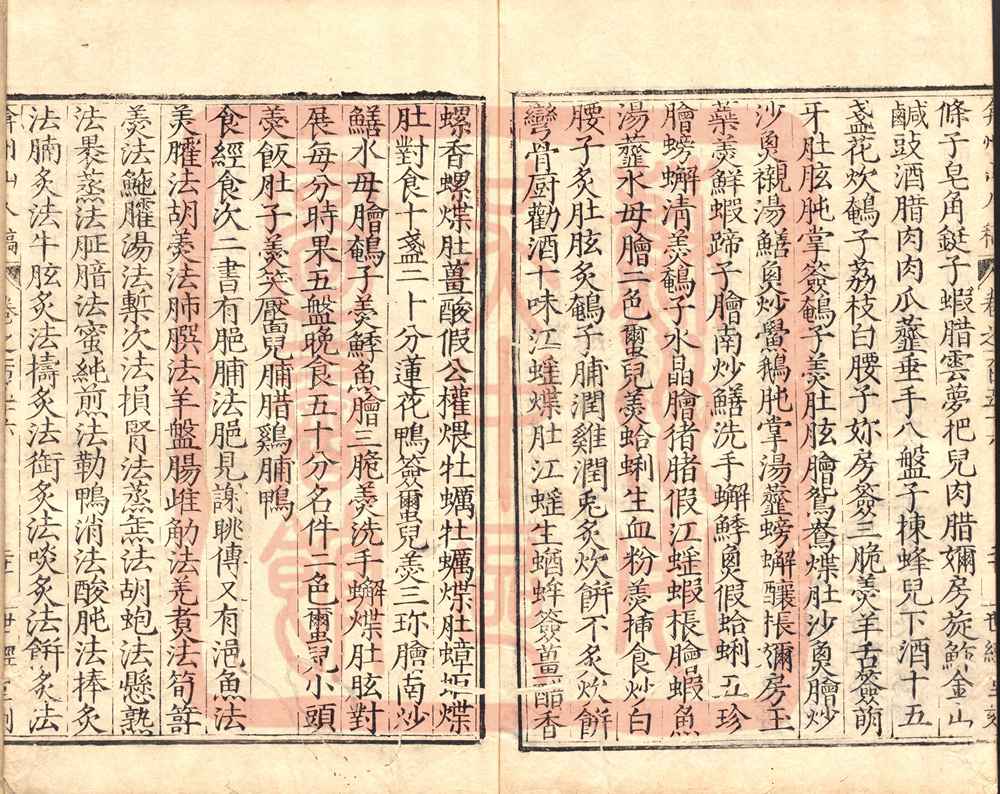 條子皂角鋌子蝦腊雲夢把兒肉腊嬭房旋鮓金山
鹹豉酒腊肉肉瓜虀垂手八盤子揀蜂兒下酒十五
盞花炊鵪子荔枝白腰子妳房簽三脆羹羊舌簽萌
牙肚胘肫掌簽鵪子羹肚胘膾鴛鴦煠肚沙魚膾炒
沙魚襯湯鱔魚炒鱟鵝肫掌湯虀螃蠏釀棖嬭房玉
蘂羹鮮蝦蹄子膾南炒鱔洗手蠏鯚魚假蛤蜊五珍
膾螃蠏清羹鵪子水晶膾猪肚假江蝖蝦棖膾蝦魚
湯虀水母膾二色蠒兒羹蛤蜊生血粉羹揷食炒白
腰子炙肚胘炙鵪子脯潤雞潤兎炙炊餅不炙炊餅
臠骨厨勸酒十味江蝖煠肚江蝖生蝤蛑簽薑醋香
螺香螺煠肚薑酸假公權煨牡蠣牡蠣煠肚蟑蚷煠
肚對食十盞二十分蓮花鴨簽蠒兒羹三珎膾南炒
鱔水母膾鵪子羹鯚魚膾三脆羹洗手蠏煠肚胘對
展每分時果五盤晚食五十分名件二色蠒兒小頭
羹飯肚子羹笑靨兒脯腊鷄脯鴨
食經食次二書有脃脯法脃見謝眺傳又有浥魚法
羙臛法胡羹法肺𦠆法羊盤腸雌觔法羌煑法筍䈚
羹法鮑臛湯法槧次法損腎法蒸缹法胡䏽法懸熟
法褁蒸法䏰腤法蜜純煎法勒鴨消法酸肫法捧炙
法腩炙法牛胘炙法擣炙法銜炙法啖炙法餅炙法